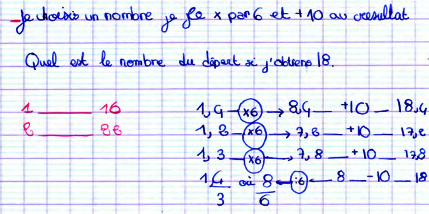 Je choisis un nombre je le x par 6 et +10 au resultat
Quel est le nombre du départ si j'obtiens 18.
1 ——— 16
8 ——— 86
1,4 —(x6)→ 8,4 — +10 — 18,4
1,3 —(x6)→ 7,8 — +10 — 17,8
1,3 —(x6)→ 7,8 — +10 — 17,8
1 4/3 où 8/6 ←(:6)— 8 — -10 — 18